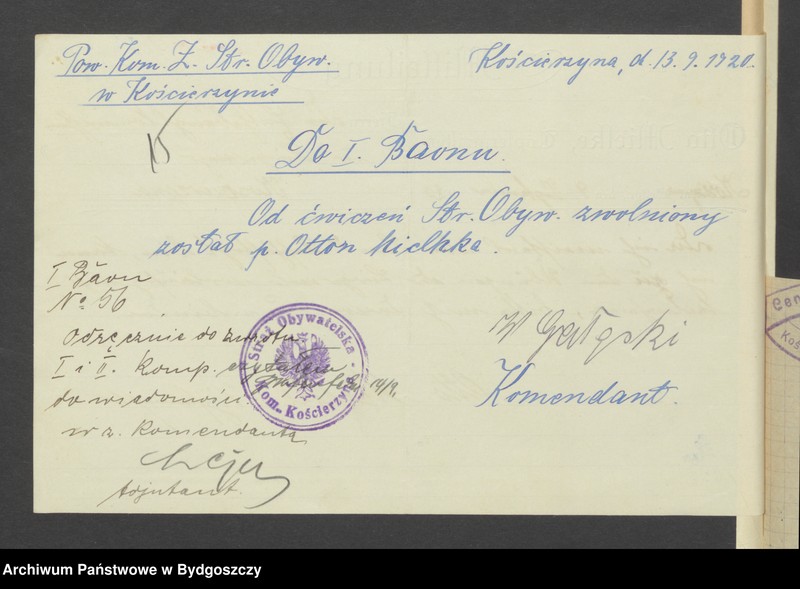 Pow. Kom. Z. Str. Obyw.
w Kościerzynie
Kościerzyna, d. 13. 9. 1920.
15
Do I. Baonu.
Od ćwiczeń Str. Obyw. zwolniony
został p. Otton Mielkka.
I Baon
No 56
Odręcznie do zwrotu
I i II. Komp.
19/9.
do wiadomości
w z. Komendanta
Adjutant.
Straż Obywatelska
Kom. Kościerzyna
Komendant.
Archiwum Państwowe w Bydgoszczy